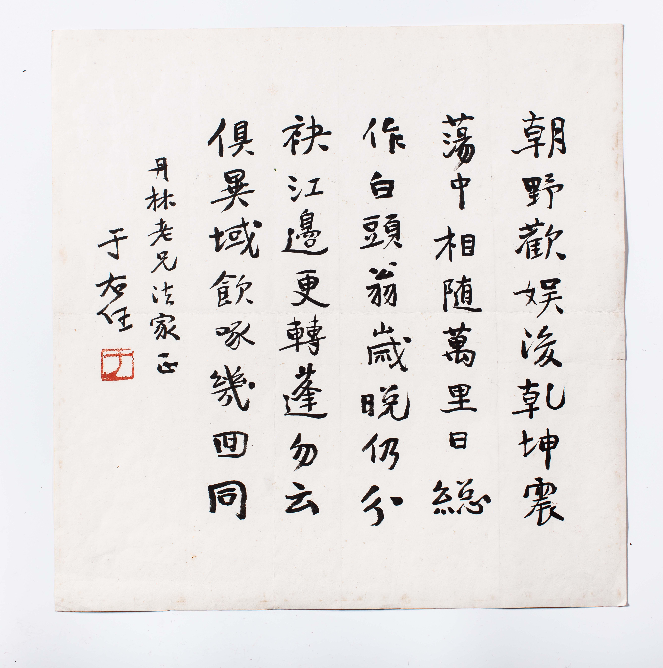 朝野歡娱後乾坤震
蕩中相随萬里日総
作白頭翁歲晚仍分
袂江邊更轉蓬勿云
俱異域飲啄幾回同
丹林老兄法家正
于右任